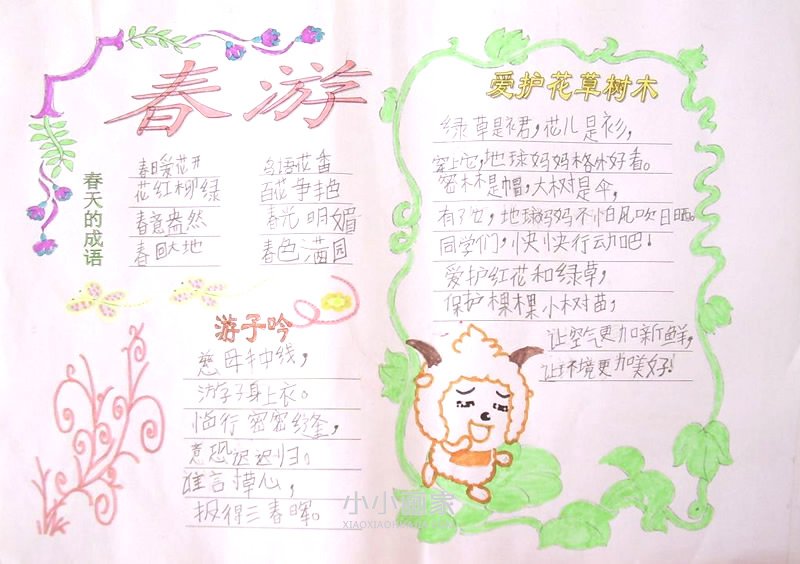 春游
春天的成语
春日爱花开
鸟语花香
花红柳绿
百花争艳
春意盎然
春光明媚
春回大地
春色满园
游子吟
慈母手中线，
游子身上衣。
临行密密缝，
意恐迟迟归。
谁言草心，
报得三春晖。
爱护花草树木
绿草是裙，花儿是衫，
穿上它，地球妈妈格外好看。
密林是帽，大树是伞，
有了它，地球妈妈不怕风吹日晒。
同学们，快快行动吧！
爱护红花和绿草，
保护棵棵小树苗，
让空气更加新鲜，
让环境更加美好！
小小画家